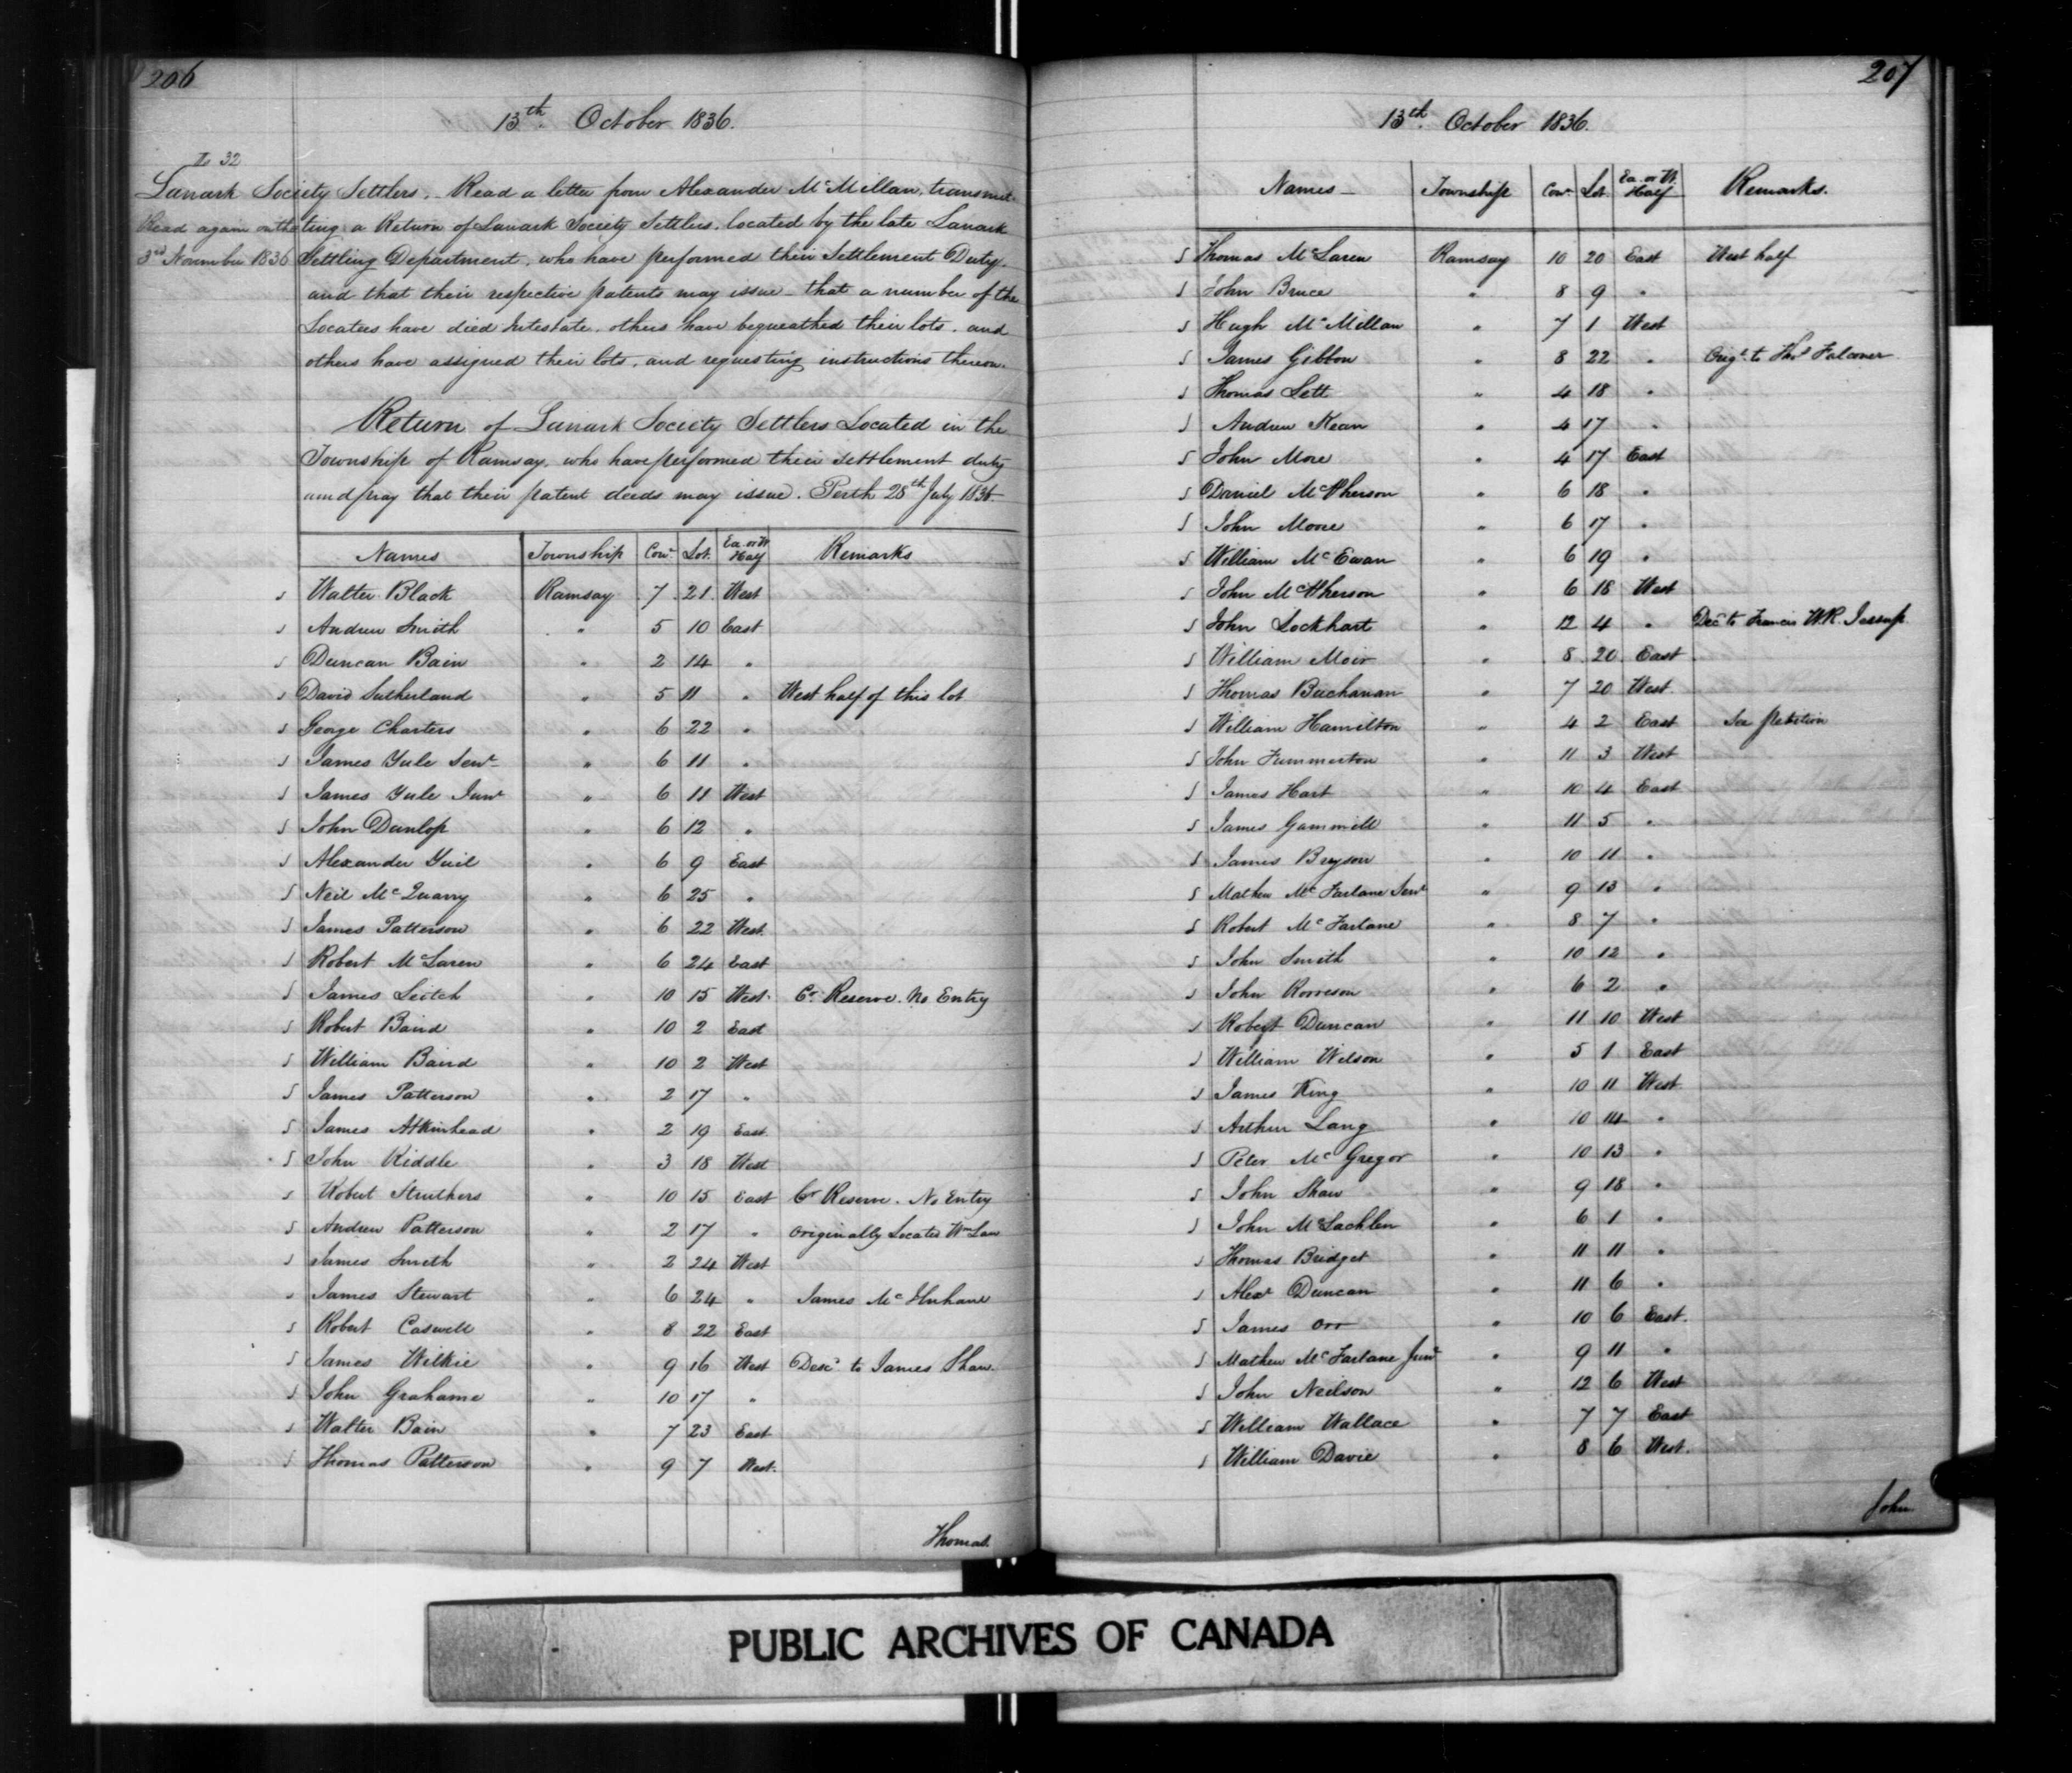 206
13th October 1836.
L 32
Lanark Society Settlers. Read a letter from Alexander McMillan, transmit-
Read again on the
ting a Return of Lanark Society Settlers, located by the late Lanark
3rd November 1836
Settling Department, who have performed their Settlement Duty.
and that their respective patents may issue - that a number of the
Locatees have died Intestate. others have bequeathed their lots. and
others have assigned their lots, and requesting instructions thereon.
Return of Lanark Society Settlers Located in the
Township of Ramsay, who have performed their settlement duty
and pray that their patent deeds may issue. Perth 28th July 1836
Names Township Con. Lot. Ea. or W. Half Remarks
S Walter Black Ramsay 7 21 West
S Andrew Smith " 5 10 East
S Duncan Bain " 2 14 "
S David Sutherland " 5 11 " West half of this lot
S George Charters " 6 22 "
S James Yule Senr " 6 11 "
S James Yule Junr " 6 11 West
S John Dunlop " 6 12 "
S Alexander Yuil " 6 9 East
S Neil McQuarry " 6 25 "
S James Patterson " 6 22 West
S Robert McLaren " 6 24 East
S James Leitch " 10 15 West Cr. Reserve. No Entry
S Robert Baird " 10 2 East
S William Baird " 10 2 West
S James Patterson " 2 17 "
S James Atkinhead " 2 19 East
S John Riddle " 3 18 West
S Robert Struthers " 10 15 East Cr Reserve. No Entry
S Andrew Patterson " 2 17 " Originally Located Wm Law
S James Smith " 2 24 West
S James Stewart " 6 24 " James Mc
S Robert Caswell " 8 22 East
S James Wilkie " 9 16 West Desc to James Shaw.
S John Grahame " 10 17 "
S Walter Bain " 7 23 East
S Thomas Patterson " 9 7 West.
Thomas.
207
13th October 1836.
Names Township Con. Lot. Ea. or W. Half Remarks.
S Thomas McLaren Ramsay 10 20 East West half
S John Bruce " 8 9 "
S Hugh McMillan " 7 1 West
S James Gibbon " 8 22 " Orig. to Thos Falconer
S Thomas Lett " 4 18 "
S Andrew Kean " 4 17 "
S John More " 4 17 East
S Daniel McPherson " 6 18 "
S John Moore " 6 17 "
S William McEwan " 6 19 "
S John McPherson " 6 18 West
S John Lockhart " 12 4 " Dec to Francis W.R. Jessup
S William Moir " 8 20 East
S Thomas Buchanan " 7 20 West
S William Hamilton " 4 2 East See petition
S John Fummerton " 11 3 West
S James Hart " 10 4 East
S James Gammill " 11 5 "
S James Bryson " 10 11 "
S Mathew McFarlane Senr " 9 13 "
S Robert McFarlane " 8 7 "
S John Smith " 10 12 "
S John Rorreson " 6 2 "
S Robert Duncan " 11 10 West
S William Wilson " 5 1 East
S James King " 10 11 West
S Arthur Lang " 10 14 "
S Peter McGregor " 10 13 "
S John Shaw " 9 18 "
S John McLachlen " 6 1 "
S Thomas Bridget " 11 11 "
S Alexr Duncan " 11 6 "
S James Orr " 10 6 East.
S Mathew McFarlane Junr " 9 11 "
S John Neilson " 12 6 West
S William Wallace " 7 7 East
S William Davie " 8 6 West.
John
PUBLIC ARCHIVES OF CANADA